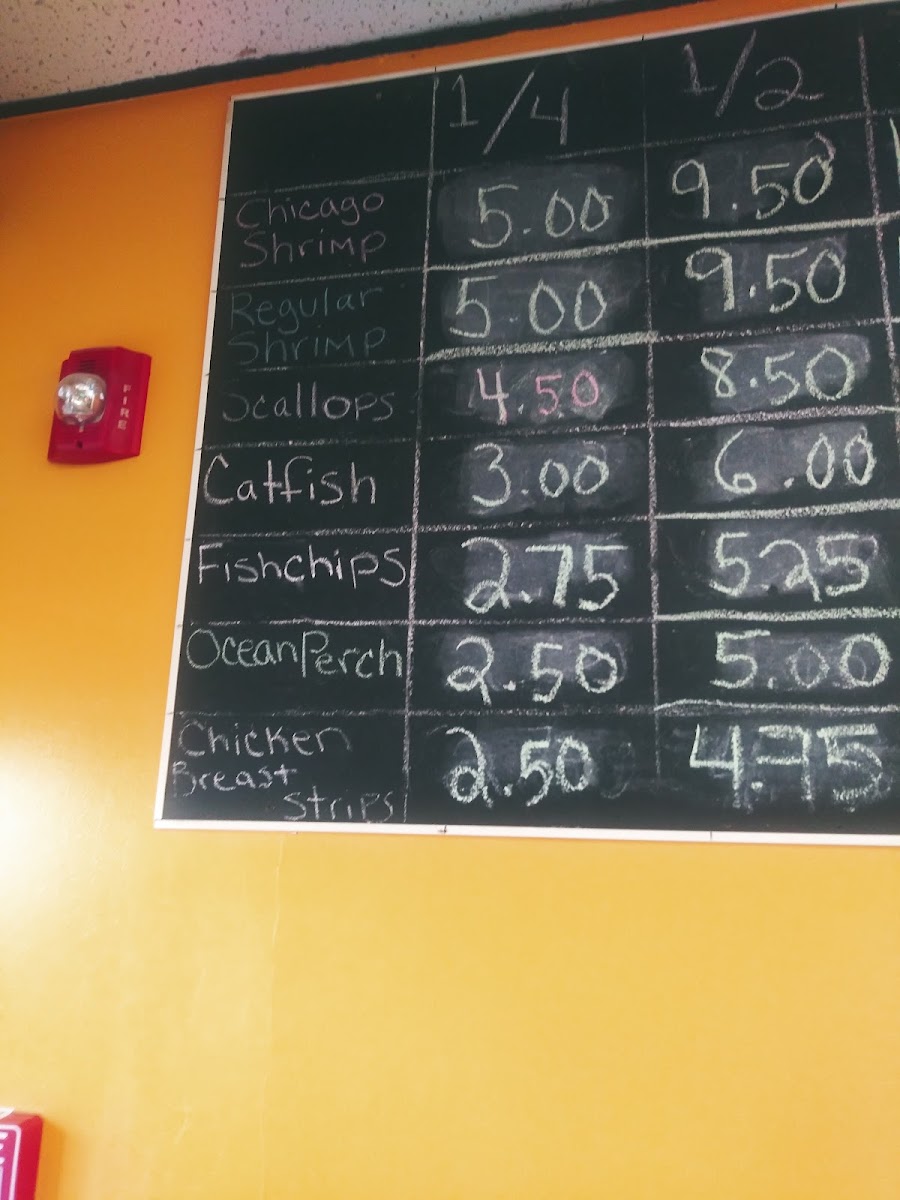 1/4 1/2
Chicago
Shrimp
5.00 9.50
Regular
Shrimp
5.00 9.50
Scallops 4.50 8.50
Catfish 3.00 6.00
Fishchips 2.75 525
OceanPerch 2.50 5.00
Chicken
Breast
Strips
2.50 4.75
FIRE